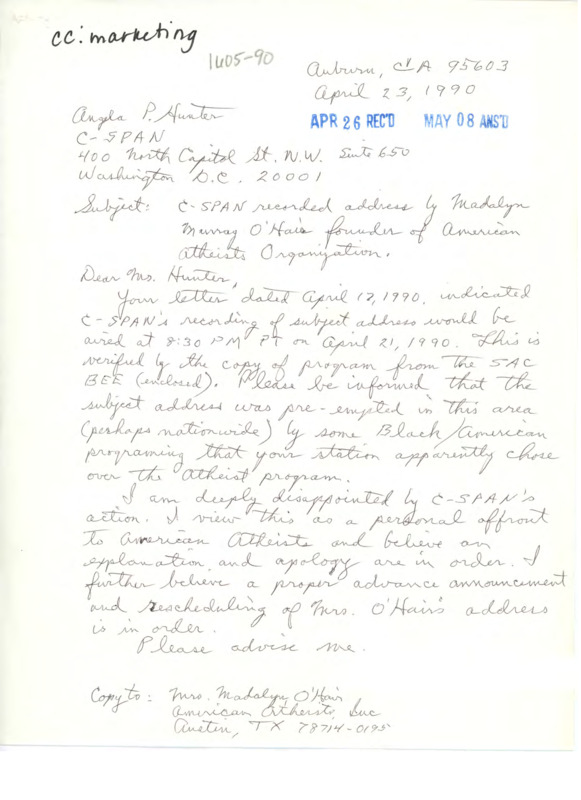 cc: marketing
1405-90
Auburn, CA 95603
April 23, 1990
APR 26 REC'D MAY 08 ANS'D
Angela P. Hunter
C-SPAN
400 North Capitol St. N.W. Suite 650
Washington D.C. 20001
Subject: C-SPAN recorded address by Madalyn
Murray O'Hair founder of American
Atheists Organization.
Dear Ms. Hunter,
Your letter dated April 12, 1990, indicated
C-SPAN's recording of subject address would be
aired at 8:30 PM PT on April 21, 1990. This is
verified by the copy of program from the SAC
BEE (enclosed). Please be informed that the
subject address was pre-empted in this area
(perhaps nationwide) by some Black/American
programing that your station apparently chose
over the Atheist program.
I am deeply disappointed by C-SPAN's
action. I view this as a personal affront
to American Atheists and believe an
explanation and apology are in order. I
further believe a proper advance announcement
and rescheduling of Mrs. O'Hair's address
is in order.
Please advise me.
Copy to: Mrs. Madalyn O'Hair
American Atheists, Inc
Austin, TX 78714-0195